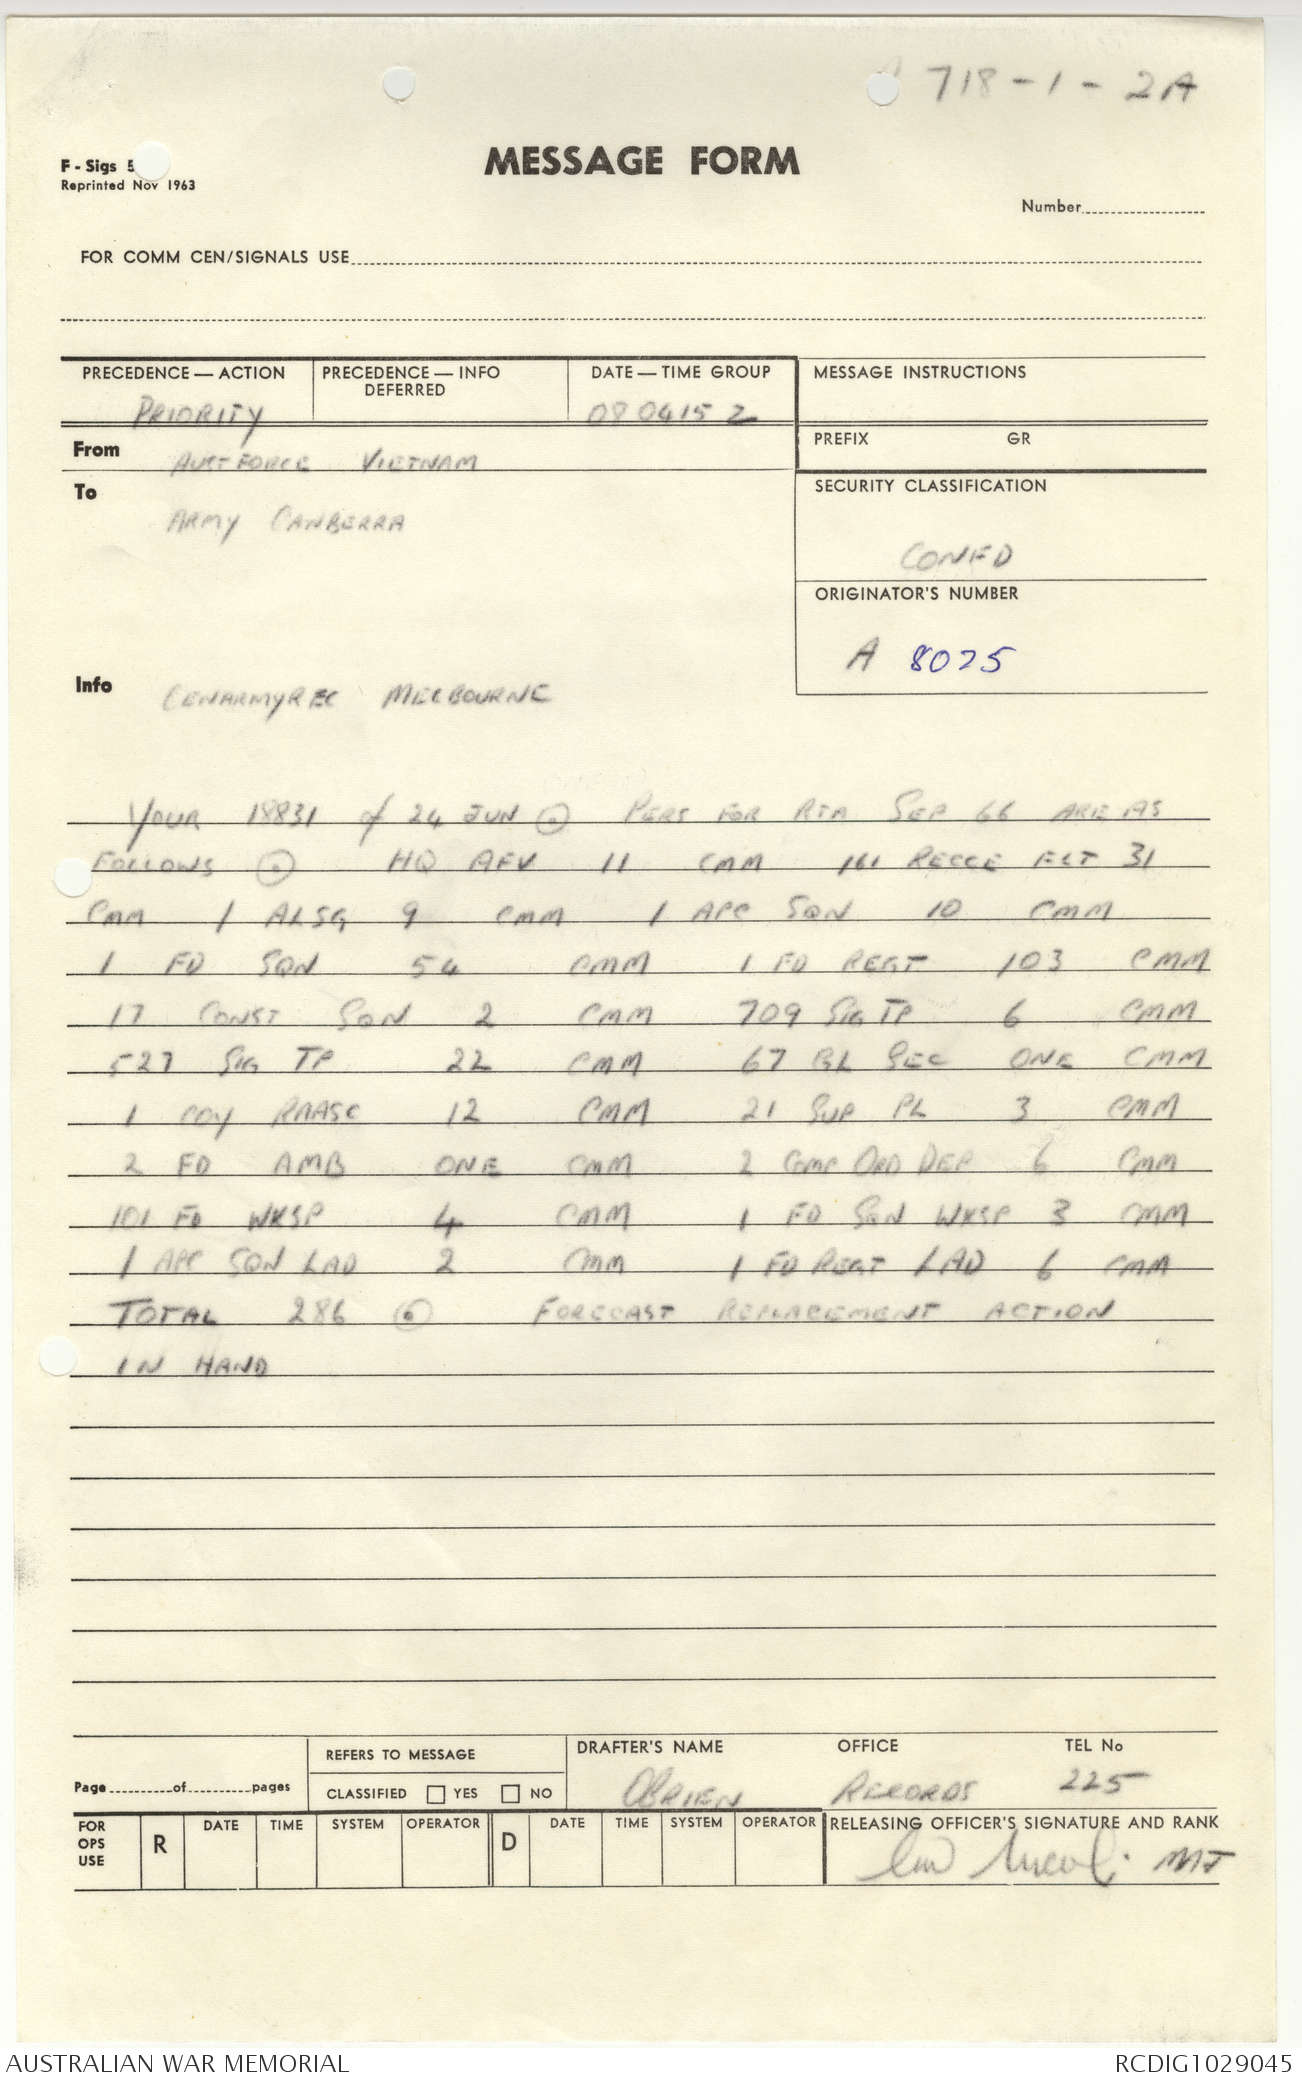 718-1-2A
F - Sigs 5
Reprinted Nov 1963
MESSAGE FORM
Number
FOR COMM CEN/SIGNALS USE
PRECEDENCE — ACTION
PRIORITY
PRECEDENCE — INFO
DEFERRED
DATE — TIME GROUP
080415Z
MESSAGE INSTRUCTIONS
From AUSTFORCE VIETNAM
PREFIX GR
To ARMY CANBERRA
SECURITY CLASSIFICATION
CONFD
ORIGINATOR'S NUMBER
A 8025
Info CENARMYREC MELBOURNE
YOUR 18831 of 24 JUN @ PERS FOR RTA SEP 66 ARE AS
FOLLOWS @ HQ AFV 11 CMM 161 RECCE FLT 31
CMM 1 ALSG 9 CMM 1 APC SQN 10 CMM
1 FD SQN 54 CMM 1 FD REGT 103 CMM
17 CONST SQN 2 CMM 709 SIG TP 6 CMM
527 SIG TP 22 CMM 67 GL SEC ONE CMM
1 COY RAASC 12 CMM 21 SUP PL 3 CMM
2 FD AMB ONE CMM 2 COMP ORD DEP 6 CMM
101 FD WKSP 4 CMM 1 FD SQN WKSP 3 CMM
1 APC SQN LAD 2 CMM 1 FD REGT LAD 6 CMM
TOTAL 286 @ FORECAST REPLACEMENT ACTION
IN HAND
Page of pages
REFERS TO MESSAGE
CLASSIFIED YES NO
DRAFTER'S NAME OFFICE TEL No
OBRIEN RECORDS 225
FOR OPS USE R DATE TIME SYSTEM OPERATOR D DATE TIME SYSTEM OPERATOR
RELEASING OFFICER'S SIGNATURE AND RANK
MAJ
AUSTRALIAN WAR MEMORIAL RCDIG1029045